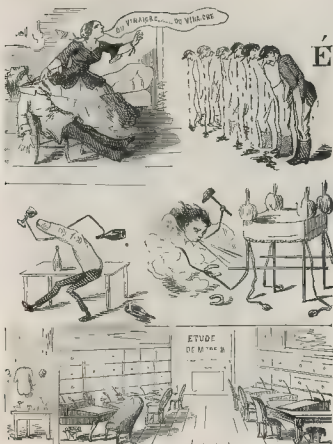 DU VINAIGRE......DU VINAIGRE
É
ETUDE
DE Mtre B